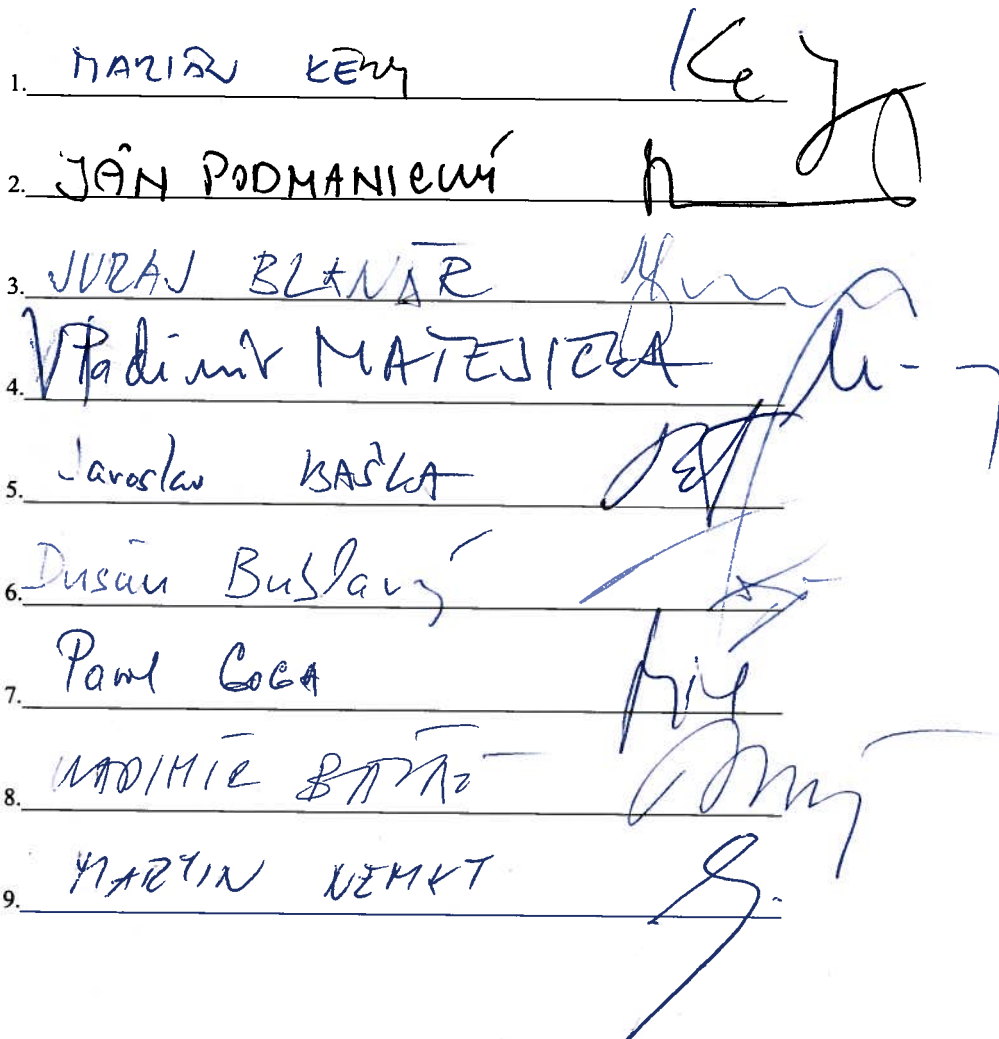 1. MARIÁN KÉRY
2. JÁN PODMANICKÝ
3. JURAJ BLANÁR
4. Vladimír MATEJIČKA
5. Jaroslav BAŠKA
6. Dušan Bublavý
7. Pavol GOGA
8. VLADIMÍR BALÁŽ
9. MARTIN NEMKY